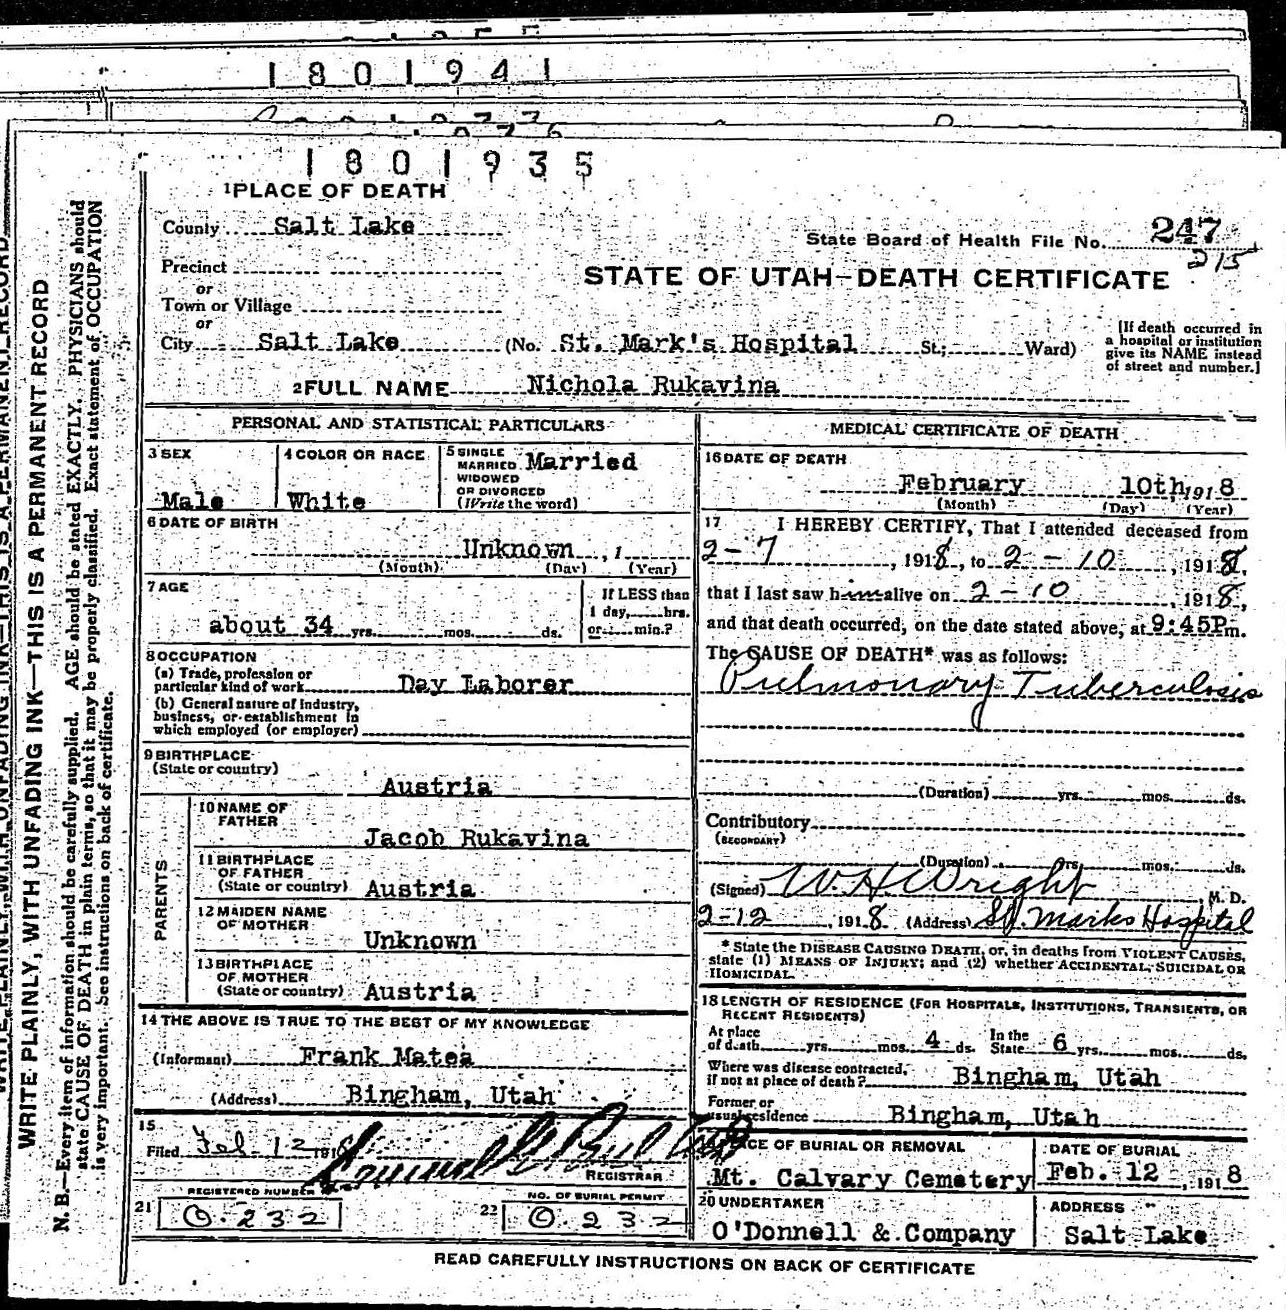 1801941
1801935
1 PLACE OF DEATH
County Salt Lake
State Board of Health File No. 247
215
Precinct
or
Town or Village
or
STATE OF UTAH—DEATH CERTIFICATE
City Salt Lake (No. St. Mark's Hospital St.; Ward)
[If death occurred in
a hospital or institution
give its NAME instead
of street and number.]
2 FULL NAME Nichola Rukavina
PERSONAL AND STATISTICAL PARTICULARS
3 SEX
Male
4 COLOR OR RACE
White
5 SINGLE
MARRIED
WIDOWED
OR DIVORCED
(Write the word)
Married
6 DATE OF BIRTH
Unknown , 1
(Month) (Day) (Year)
7 AGE
about 34 yrs. mos. ds.
If LESS than
1 day, hrs.
or min.?
8 OCCUPATION
(a) Trade, profession or
particular kind of work Day Laborer
(b) General nature of industry,
business, or establishment in
which employed (or employer)
9 BIRTHPLACE
(State or country)
Austria
PARENTS
10 NAME OF
FATHER
Jacob Rukavina
11 BIRTHPLACE
OF FATHER
(State or country) Austria
12 MAIDEN NAME
OF MOTHER
Unknown
13 BIRTHPLACE
OF MOTHER
(State or country) Austria
14 THE ABOVE IS TRUE TO THE BEST OF MY KNOWLEDGE
(Informant) Frank Matea
(Address) Bingham, Utah
15
Filed Feb. 12 191
REGISTRAR
REGISTERED NUMBER
21 O.232
NO. OF BURIAL PERMIT
22 O.232
MEDICAL CERTIFICATE OF DEATH
16 DATE OF DEATH
February 10th, 1918
(Month) (Day) (Year)
17 I HEREBY CERTIFY, That I attended deceased from
2-7, 1918, to 2-10, 1918,
that I last saw him alive on 2-10, 1918,
and that death occurred, on the date stated above, at 9:45P m.
The CAUSE OF DEATH* was as follows:
Pulmonary Tuberculosis
(Duration) yrs. mos. ds.
Contributory
(SECONDARY)
(Duration) yrs. mos. ds.
(Signed) W. H. Wright M. D.
2-12, 1918 (Address) St. Marks Hospital
* State the DISEASE CAUSING DEATH, or, in deaths from VIOLENT CAUSES,
state (1) MEANS OF INJURY; and (2) whether ACCIDENTAL, SUICIDAL OR
HOMICIDAL.
18 LENGTH OF RESIDENCE (FOR HOSPITALS, INSTITUTIONS, TRANSIENTS, OR
RECENT RESIDENTS)
At place
of death yrs. mos. 4 ds.
In the
State 6 yrs. mos. ds.
Where was disease contracted,
if not at place of death? Bingham, Utah
Former or
usual residence Bingham, Utah
PLACE OF BURIAL OR REMOVAL
Mt. Calvary Cemetery
DATE OF BURIAL
Feb. 12, 1918
20 UNDERTAKER
O'Donnell & Company
ADDRESS
Salt Lake
READ CAREFULLY INSTRUCTIONS ON BACK OF CERTIFICATE
WRITE PLAINLY, WITH UNFADING INK—THIS IS A PERMANENT RECORD
N. B.—Every item of information should be carefully supplied. AGE should be stated EXACTLY. PHYSICIANS should
state CAUSE OF DEATH in plain terms, so that it may be properly classified. Exact statement of OCCUPATION
is very important. See instructions on back of certificate.